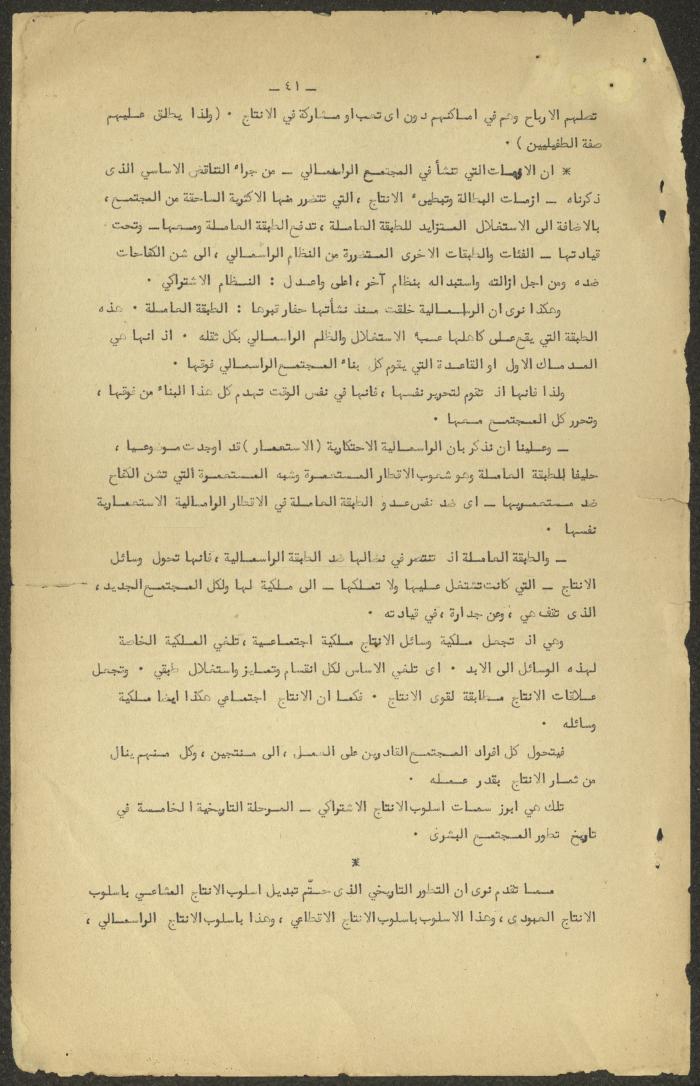 ـ ٤١ ـ
تصلهم الارباح وهم في اماكنهم دون اى تعب او مشاركة في الانتاج ٠ (ولذا يطلق عليهم
صفة الطفيليين ) ٠
* ان الازمات التي تنشأ في المجتمع الراسمالي ـ من جراء التناقض الاساسي الذى
ذكرناه ـ ازمات البطالة وتبطيىء الانتاج ، التي تتضرر منها الاكثرية الساحقة من المجتمع ،
بالاضافة الى الاستغلال المتزايد للطبقة العاملة ، تدفع الطبقة العاملة ومعها ـ وتحت
قيادتها ـ الفئات والطبقات الاخرى المتضررة من النظام الراسمالي ، الى شن الكفاحات
ضده ومن اجل ازالته واستبداله بنظام آخر ، اعلى واعدل : النظام الاشتراكي ٠
وهكذا نرى ان الراسمالية خلقت منذ نشأتها حفار قبرها : الطبقة العاملة ٠ هذه
الطبقة التي يقع على كاهلها عبء الاستغلال والظلم الراسمالي بكل ثقله ٠ اذ انها هي
المدماك الاول او القاعدة التي يقوم كل بناء المجتمع الراسمالي فوقها ٠
ولذا فانها اذ تقوم لتحرير نفسها ، فانها في نفس الوقت تهدم كل هذا البناء من فوقها ،
وتحرر كل المجتمع معها ٠
ـ وعلينا ان نذكر بان الراسمالية الاحتكارية (الاستعمار ) قد اوجدت موضوعيا ،
حليفا للطبقة العاملة وهو شعوب الاقطار المستعمرة وشبه المستعمرة التي تشن الكفاح
ضد مستعمريها ـ اى ضد نفس عدو الطبقة العاملة في الاقطار الراسمالية الاستعمارية
نفسها ٠
ـ والطبقة العاملة اذ تنتصر في نضالها ضد الطبقة الراسمالية ، فانها تحول وسائل
الانتاج ـ التي كانت تشتغل عليها ولا تملكها ـ الى ملكية لها ولكل المجتمع الجديد ،
الذى تقف هي ، وعن جدارة ، في قيادته ٠
وهي اذ تجعل ملكية وسائل الانتاج ملكية اجتماعية ، تلغي الملكية الخاصة
لهذه الوسائل الى الابد ٠ اى تلغي الاساس لكل انقسام وتمايز واستغلال طبقي ٠ وتجعل
علاقات الانتاج مطابقة لقوى الانتاج ٠ فكما ان الانتاج اجتماعي هكذا ايضا ملكية
وسائله ٠
فيتحول كل افراد المجتمع القادرين على العمل ، الى منتجين ، وكل منهم ينال
من ثمار الانتاج بقدر عمله ٠
تلك هي ابرز سمات اسلوب الانتاج الاشتراكي ـ المرحلة التاريخية الخامسة في
تاريخ تطور المجتمع البشرى ٠
*
مما تقدم نرى ان التطور التاريخي الذى حتّم تبديل اسلوب الانتاج المشاعي باسلوب
الانتاج العبودى ، وهذا الاسلوب باسلوب الانتاج الاقطاعي ، وهذا باسلوب الانتاج الراسمالي ،